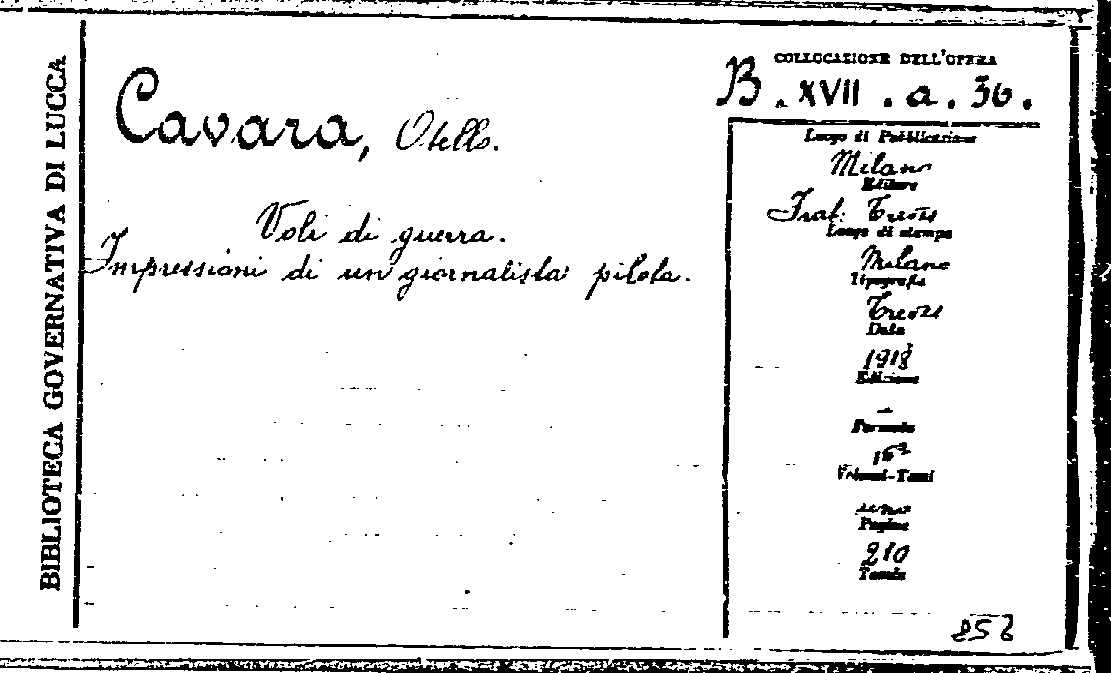 BIBLIOTECA GOVERNATIVA DI LUCCA
Cavara, Otello.
Voli di guerra.
Impressioni di un giornalista pilota.
COLLOCAZIONE DELL'OPERA
B. XVII . a . 36 .
Luogo di Pubblicazione
Milano
Editore
Frat. Treves
Luogo di stampa
Milano
Tipografia
Treves
Data
1918
Edizione
-
Formato
16º
Volumi-Tomi
uno
Pagine
210
Tavole